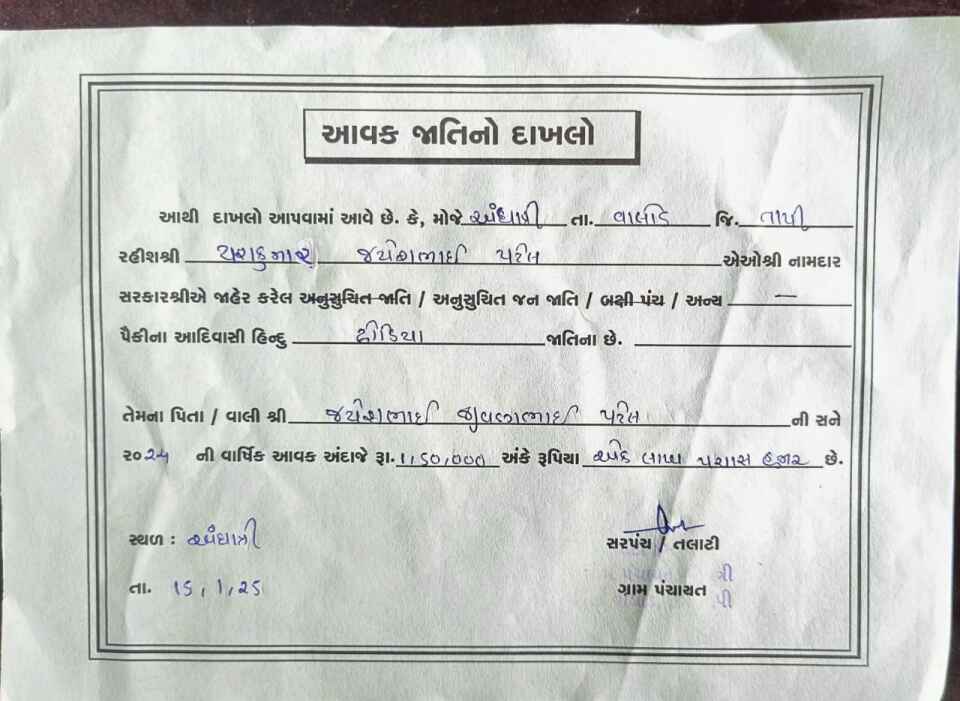 આવક જાતિનો દાખલો
આથી દાખલો આપવામાં આવે છે. કે, મોજે અંધાત્રી તા. વાલોડ જિ. તાપી
રહીશશ્રી યશકુમાર જયેશભાઈ પટેલ એઓશ્રી નામદાર
સરકારશ્રીએ જાહેર કરેલ અનુસુચિત જાતિ / અનુસુચિત જન જાતિ / બક્ષી પંચ / અન્ય —
પૈકીના આદિવાસી હિન્દુ ઢોડિયા જાતિના છે.
તેમના પિતા / વાલી શ્રી જયેશભાઈ જીવણભાઈ પટેલ ની સને
૨૦૨૫ ની વાર્ષિક આવક અંદાજે રૂા. 1,50,000 અંકે રૂપિયા એક લાખ પચાસ હજાર છે.
સ્થળ : અંધાત્રી
સરપંચ / તલાટી
તા. 15, 1, 25
ગ્રામ પંચાયત